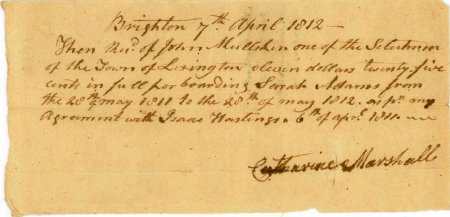 Brighton 7th April 1812 —
Then Recd of John Mulliken one of the Selectmen
of the Town of Lexington eleven dollars twenty five
cents in full for boarding Sarah Adams from
the 28th of may 1811 to the 28th of may 1812. as pr my
Agreement with Isaac Hastings 6th of aprl 1811
Catharine Marshall